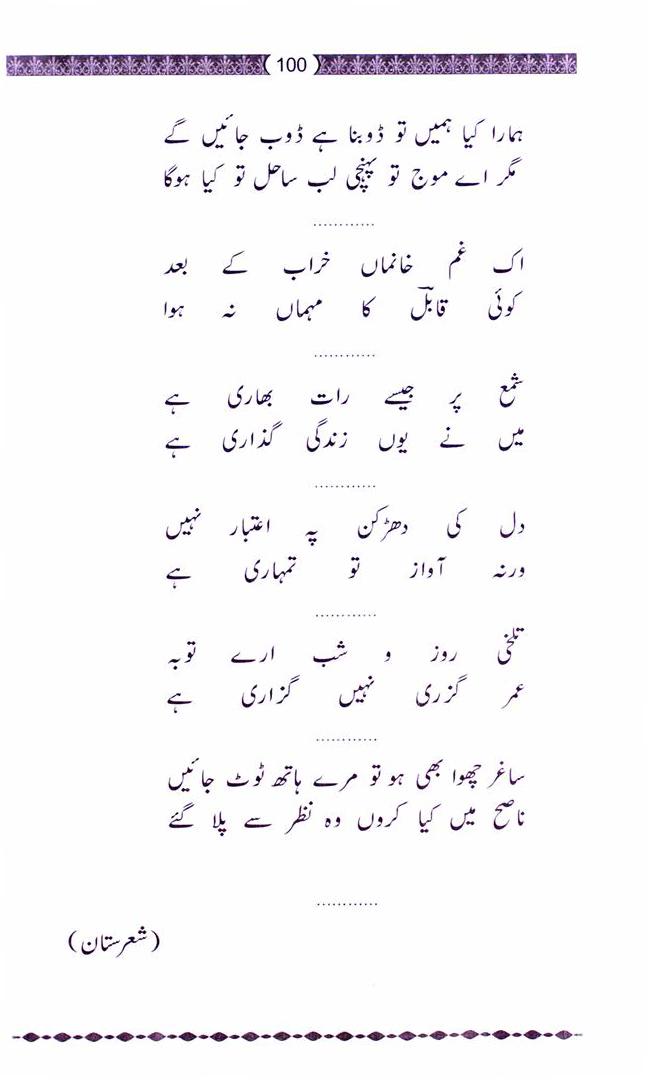 100
ہمارا کیا ہمیں تو ڈوبنا ہے ڈوب جائیں گے
مگر اے موج تو پہنچی لب ساحل تو کیا ہوگا
............
اک غم خانماں خراب کے بعد
کوئی قابلؔ کا مہماں نہ ہوا
............
شمع پر جیسے رات بھاری ہے
میں نے یوں زندگی گذاری ہے
............
دل کی دھڑکن پہ اعتبار نہیں
ورنہ آواز تو تمہاری ہے
............
تلخی روز و شب ارے توبہ
عمر گزری نہیں گزاری ہے
............
ساغر چھوا بھی ہو تو مرے ہاتھ ٹوٹ جائیں
ناصح میں کیا کروں وہ نظر سے پلا گئے
............
(شعرستان)